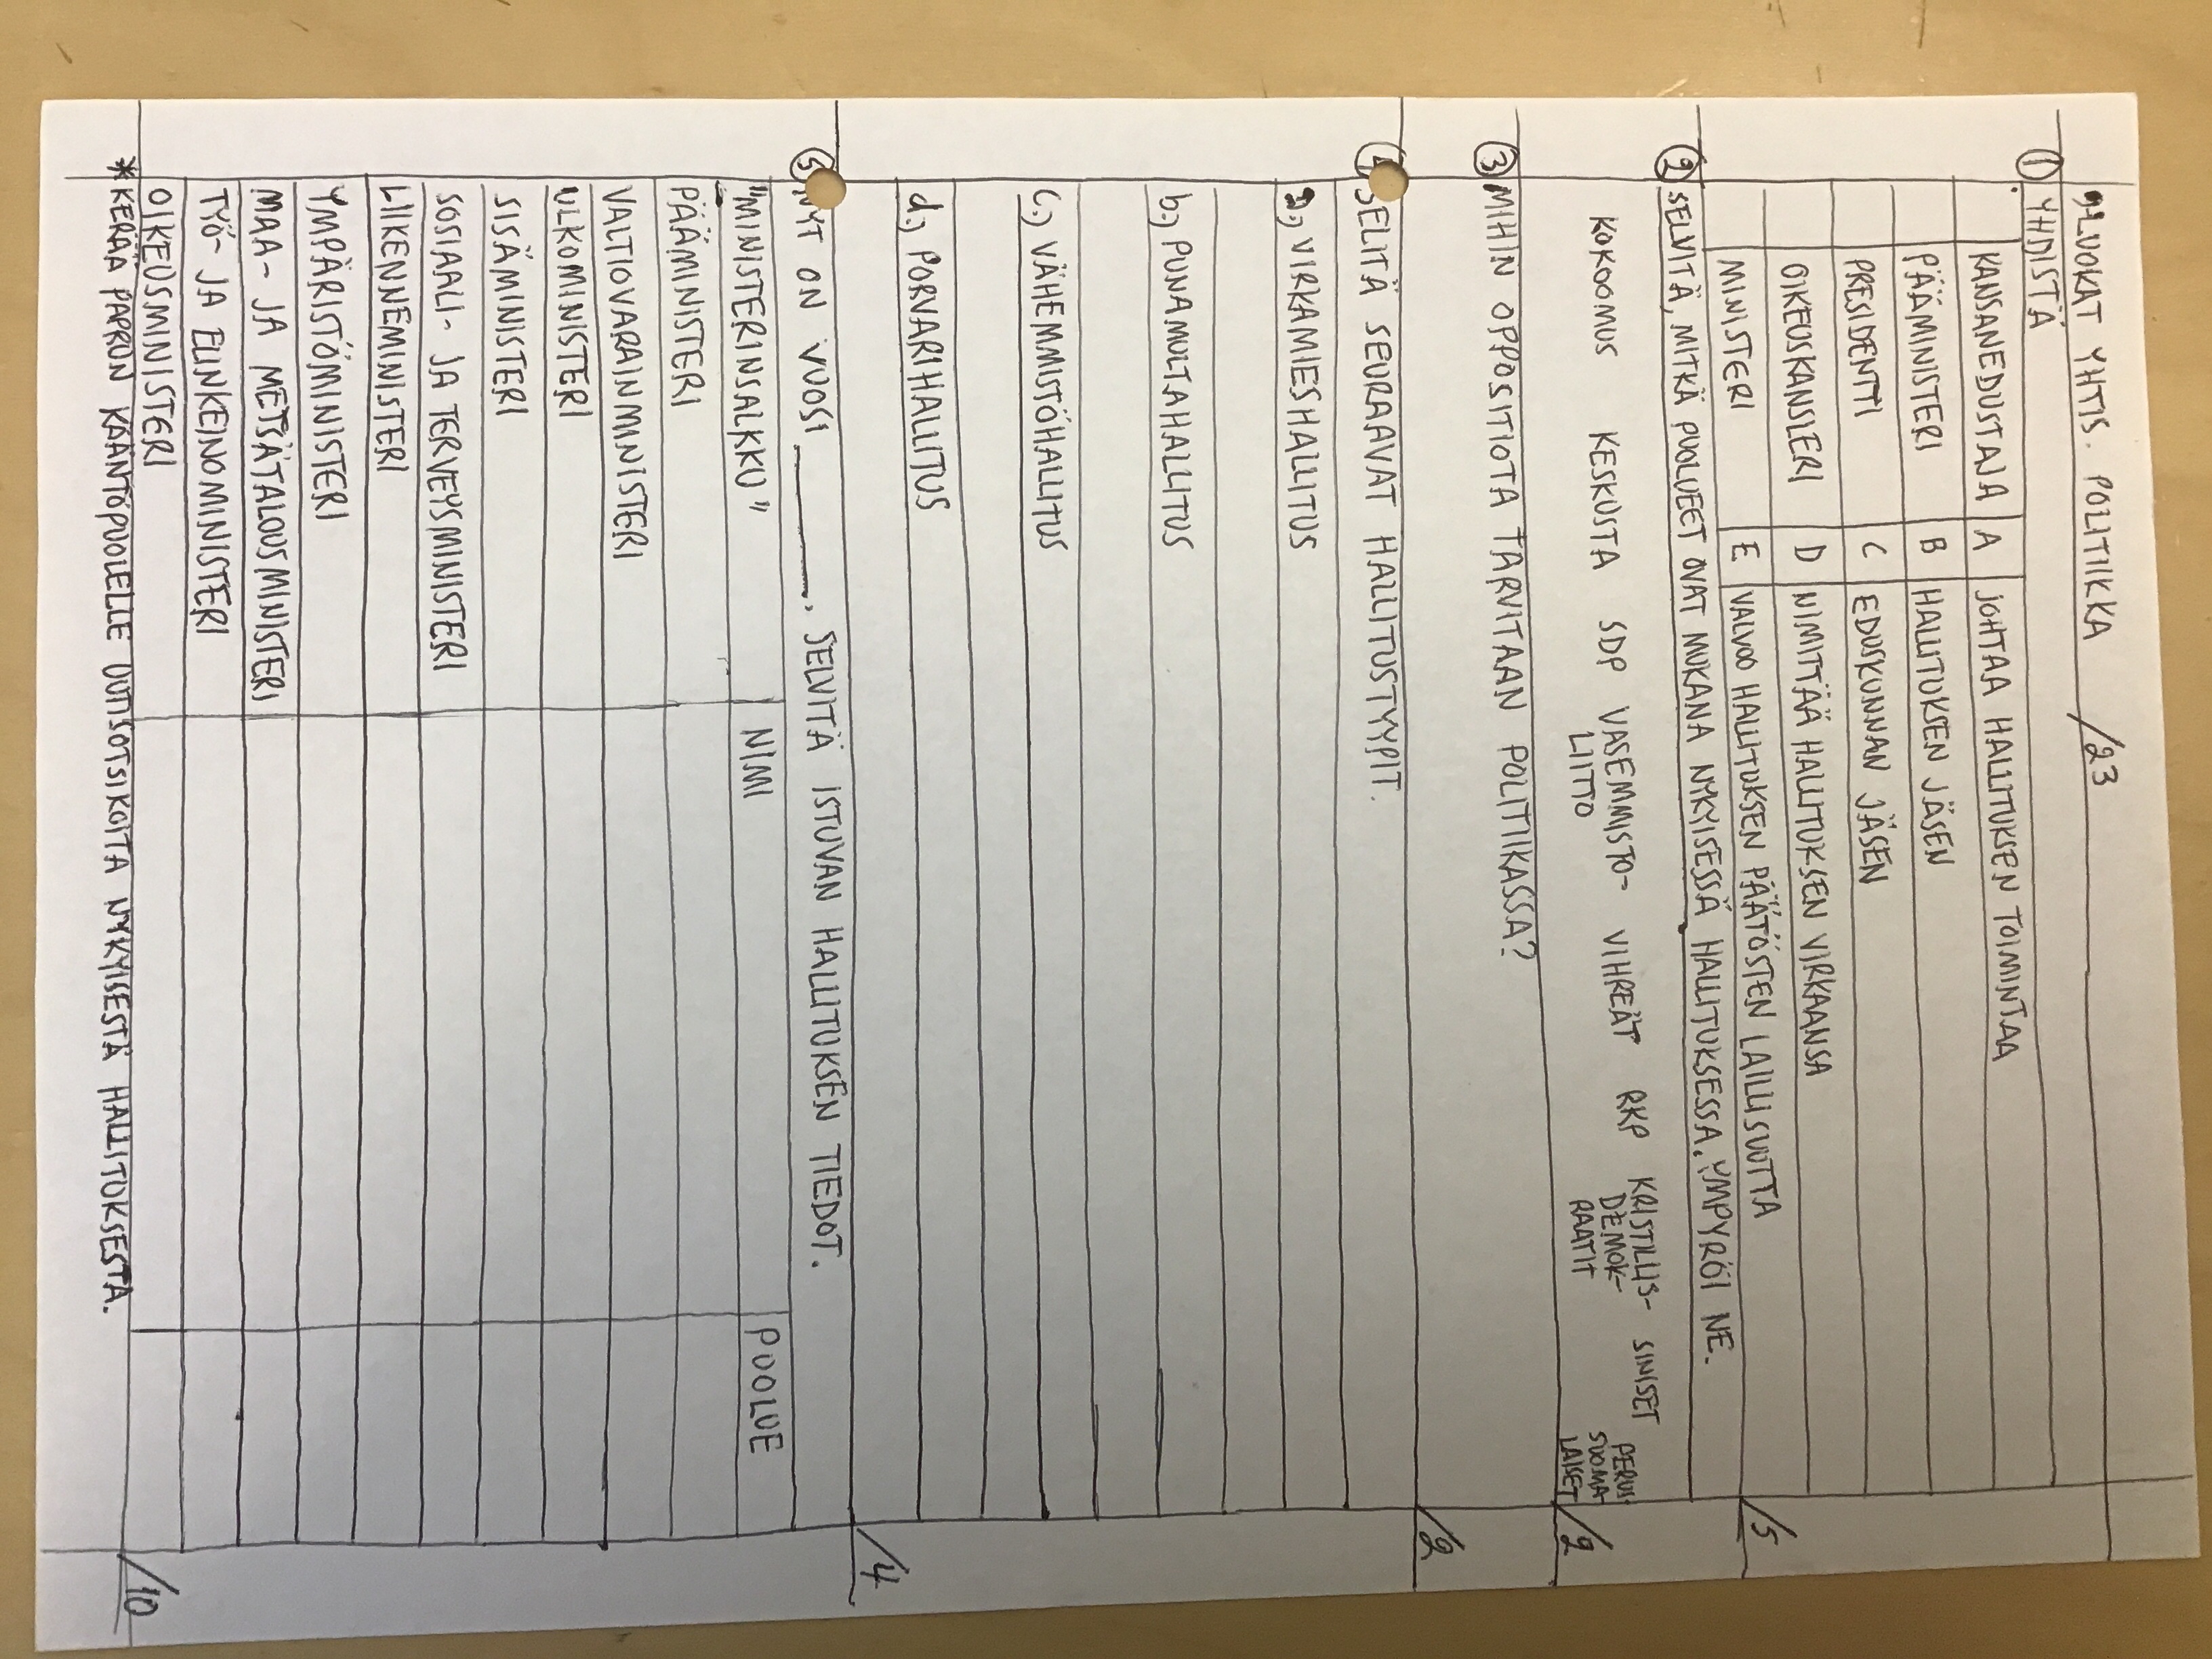 9-LUOKAT YHTIS. POLITIIKKA /23
① YHDISTÄ
KANSANEDUSTAJA A JOHTAA HALLITUKSEN TOIMINTAA
PÄÄMINISTERI B HALLITUKSEN JÄSEN
PRESIDENTTI C EDUSKUNNAN JÄSEN
OIKEUSKANSLERI D NIMITTÄÄ HALLITUKSEN VIRKAANSA
MINISTERI E VALVOO HALLITUKSEN PÄÄTÖSTEN LAILLISUUTTA
/5
② SELVITÄ, MITKÄ PUOLUEET OVAT MUKANA NYKYISESSÄ HALLITUKSESSA. YMPYRÖI NE.
KOKOOMUS KESKUSTA SDP VASEMMISTO- VIHREÄT RKP KRISTILLIS- SINISET PERUS-
LIITTO DEMOK- SUOMA-
RAATIT LAISET
/2
③ MIHIN OPPOSITIOTA TARVITAAN POLITIIKASSA?
/2
④ SELITÄ SEURAAVAT HALLITUSTYYPIT.
a.) VIRKAMIESHALLITUS
b.) PUNAMULTAHALLITUS
c.) VÄHEMMISTÖHALLITUS
d.) PORVARIHALLITUS
/4
⑤ NYT ON VUOSI ______. SELVITÄ ISTUVAN HALLITUKSEN TIEDOT.
"MINISTERINSALKKU" NIMI PUOLUE
PÄÄMINISTERI
VALTIOVARAINMINISTERI
ULKOMINISTERI
SISÄMINISTERI
SOSIAALI- JA TERVEYSMINISTERI
LIIKENNEMINISTERI
YMPÄRISTÖMINISTERI
MAA- JA METSÄTALOUSMINISTERI
TYÖ- JA ELINKEINOMINISTERI
OIKEUSMINISTERI
/10
*KERÄÄ PAPRUN KÄÄNTÖPUOLELLE UUTISOTSIKOITA NYKYISESTÄ HALLITUKSESTA.